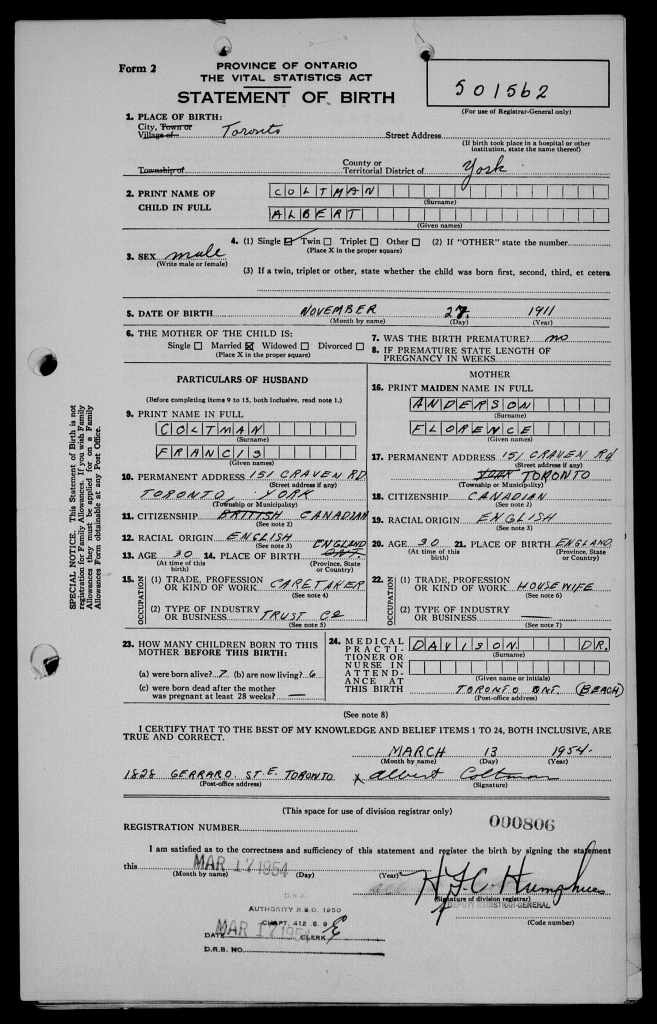 Form 2
PROVINCE OF ONTARIO
THE VITAL STATISTICS ACT
STATEMENT OF BIRTH
501562
(For use of Registrar-General only)
1. PLACE OF BIRTH:
City, Town or
Village of Toronto Street Address
(If birth took place in a hospital or other
institution, state the name thereof)
Township of County or
Territorial District of York
2. PRINT NAME OF
CHILD IN FULL
COLTMAN
(Surname)
ALBERT
(Given names)
3. SEX male
(Write male or female)
4. (1) Single Twin Triplet Other (2) If "OTHER" state the number
(Place X in the proper square)
(3) If a twin, triplet or other, state whether the child was born first, second, third, et cetera
5. DATE OF BIRTH NOVEMBER 27, 1911
(Month by name) (Day) (Year)
6. THE MOTHER OF THE CHILD IS:
Single Married X Widowed Divorced
(Place X in the proper square)
7. WAS THE BIRTH PREMATURE? no
8. IF PREMATURE STATE LENGTH OF
PREGNANCY IN WEEKS
PARTICULARS OF HUSBAND
(Before completing items 9 to 15, both inclusive, read note 1.)
9. PRINT NAME IN FULL
COLTMAN
(Surname)
FRANCIS
(Given names)
10. PERMANENT ADDRESS 151 CRAVEN RD.
(Street address if any)
TORONTO, YORK
(Township or Municipality)
11. CITIZENSHIP BRITISH CANADIAN
(See note 2)
12. RACIAL ORIGIN ENGLISH
(See note 3)
13. AGE 30 14. PLACE OF BIRTH ENGLAND ONT.
(At time of this birth) (Province, State or Country)
15. OCCUPATION
(1) TRADE, PROFESSION
OR KIND OF WORK CARETAKER
(See note 4)
(2) TYPE OF INDUSTRY
OR BUSINESS TRUST Co
(See note 5)
MOTHER
16. PRINT MAIDEN NAME IN FULL
ANDERSON
(Surname)
FLORENCE
(Given names)
17. PERMANENT ADDRESS 151 CRAVEN Rd
(Street address if any)
YORK TORONTO
(Township or Municipality)
18. CITIZENSHIP CANADIAN
(See note 2)
19. RACIAL ORIGIN ENGLISH
(See note 3)
20. AGE 30 21. PLACE OF BIRTH ENGLAND
(At time of this birth) (Province, State or Country)
22. OCCUPATION
(1) TRADE, PROFESSION
OR KIND OF WORK HOUSEWIFE
(See note 6)
(2) TYPE OF INDUSTRY
OR BUSINESS —
(See note 7)
23. HOW MANY CHILDREN BORN TO THIS
MOTHER BEFORE THIS BIRTH:
(a) were born alive? 7 (b) are now living? 6
(c) were born dead after the mother
was pregnant at least 28 weeks? —
24. MEDICAL
PRACTI-
TIONER OR
NURSE IN
ATTEND-
ANCE AT
THIS BIRTH
DAVISON DR.
(Surname)
(Given name or initials)
TORONTO ONT. (BEACH)
(Post-office address)
(See note 8)
I CERTIFY THAT TO THE BEST OF MY KNOWLEDGE AND BELIEF ITEMS 1 TO 24, BOTH INCLUSIVE, ARE
TRUE AND CORRECT.
MARCH 13 1954
(Month by name) (Day) (Year)
1828 GERRARD ST. E. TORONTO x Albert Coltman
(Post-office address) (Signature)
(This space for use of division registrar only)
REGISTRATION NUMBER 000806
I am satisfied as to the correctness and sufficiency of this statement and register the birth by signing the statement
this MAR 17 1954
(Month by name) (Day) (Year)
H.F.C. Humphries
(Signature of division registrar)
DEPUTY REGISTRAR-GENERAL
(Code number)
D.R.B.
AUTHORITY R.S.O. 1950
CHAPT. 412 S. 9
DATE MAR 17 1954 CLERK
D.R.B. NO.
SPECIAL NOTICE.—This Statement of Birth is not
registration for Family Allowances. If you wish Family
Allowances they must be applied for on a Family
Allowances Form obtainable at any Post Office.